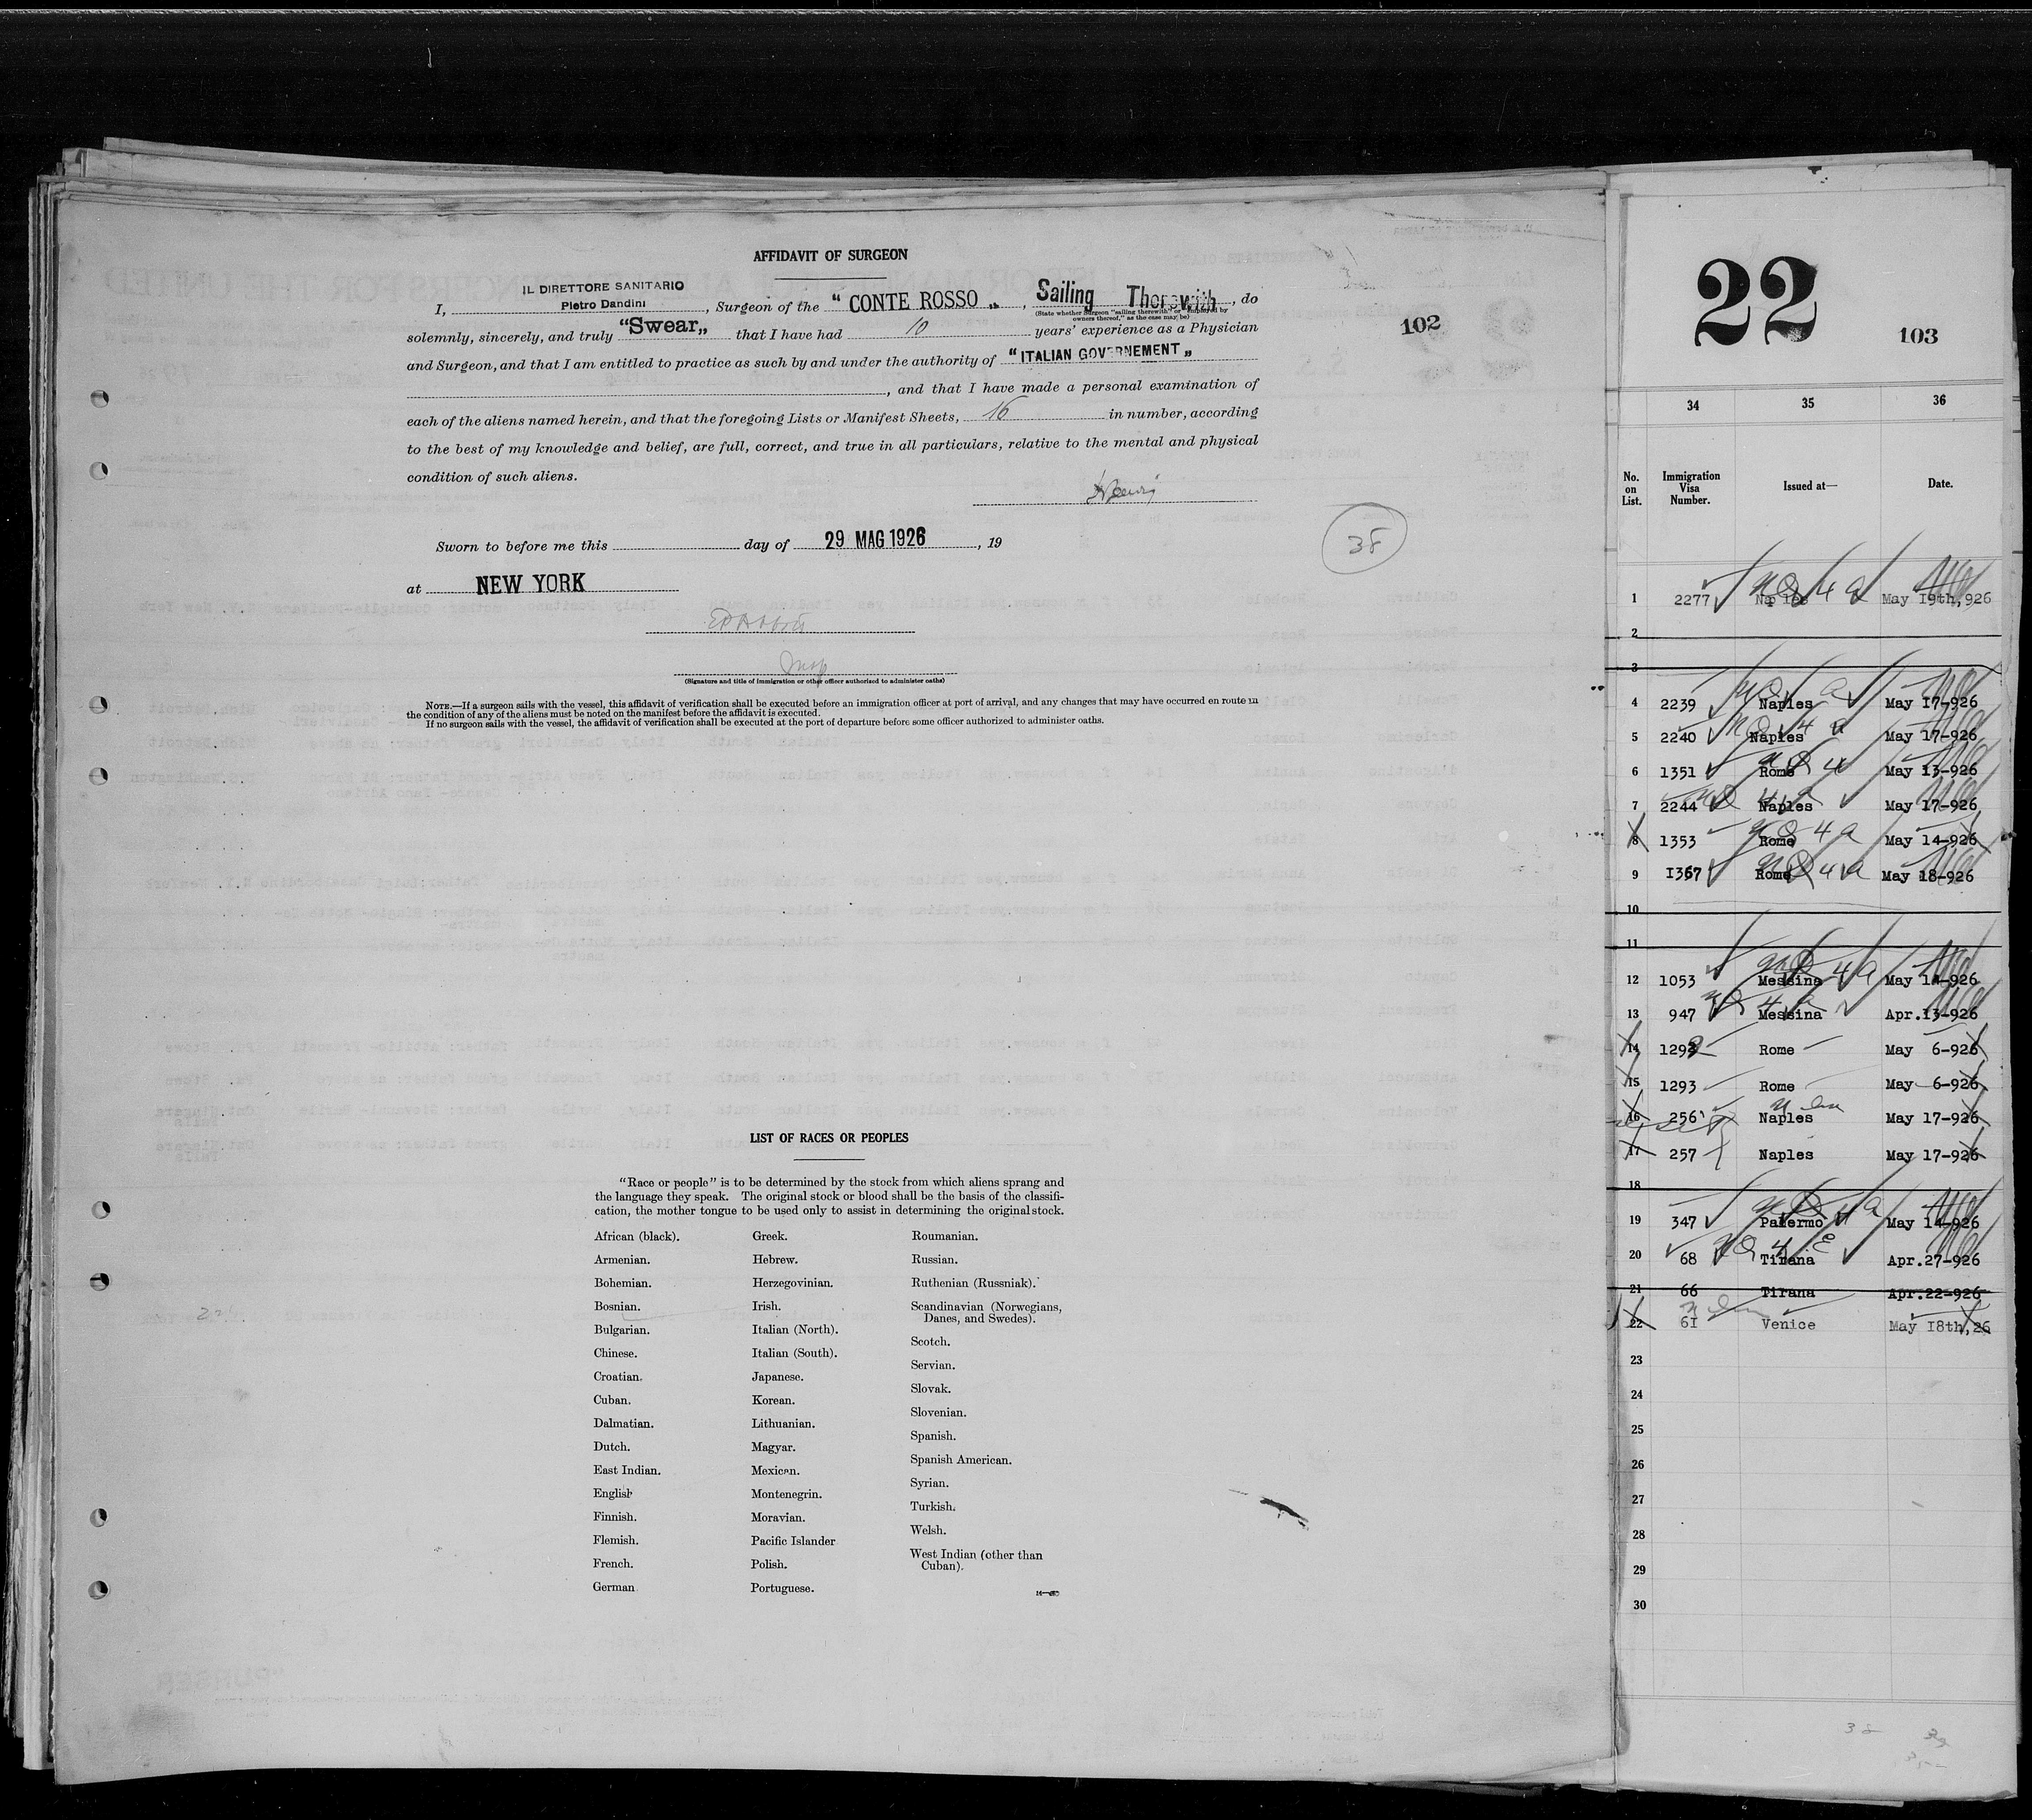 AFFIDAVIT OF SURGEON
IL DIRETTORE SANITARIO
I, Pietro Dandini, Surgeon of the "CONTE ROSSO", Sailing Therewith, do
(State whether Surgeon "sailing therewith" or "employed by
owners thereof," as the case may be)
solemnly, sincerely, and truly "Swear" that I have had 10 years' experience as a Physician
and Surgeon, and that I am entitled to practice as such by and under the authority of "ITALIAN GOVERNEMENT"
, and that I have made a personal examination of
each of the aliens named herein, and that the foregoing Lists or Manifest Sheets, 16 in number, according
to the best of my knowledge and belief, are full, correct, and true in all particulars, relative to the mental and physical
condition of such aliens.
Sworn to before me this day of 29 MAG 1926, 19
at NEW YORK
Insp
(Signature and title of immigration or other officer authorized to administer oaths)
NOTE.—If a surgeon sails with the vessel, this affidavit of verification shall be executed before an immigration officer at port of arrival, and any changes that may have occurred en route in
the condition of any of the aliens must be noted on the manifest before the affidavit is executed.
If no surgeon sails with the vessel, the affidavit of verification shall be executed at the port of departure before some officer authorized to administer oaths.
102
38
LIST OF RACES OR PEOPLES
"Race or people" is to be determined by the stock from which aliens sprang and
the language they speak. The original stock or blood shall be the basis of the classifi-
cation, the mother tongue to be used only to assist in determining the original stock.
African (black).
Armenian.
Bohemian.
Bosnian.
Bulgarian.
Chinese.
Croatian.
Cuban.
Dalmatian.
Dutch.
East Indian.
English
Finnish.
Flemish.
French.
German
Greek.
Hebrew.
Herzegovinian.
Irish.
Italian (North).
Italian (South).
Japanese.
Korean.
Lithuanian.
Magyar.
Mexican.
Montenegrin.
Moravian.
Pacific Islander
Polish.
Portuguese.
Roumanian.
Russian.
Ruthenian (Russniak).
Scandinavian (Norwegians,
Danes, and Swedes).
Scotch.
Servian.
Slovak.
Slovenian.
Spanish.
Spanish American.
Syrian.
Turkish.
Welsh.
West Indian (other than
Cuban).
22
103
34 35 36
No. on List. Immigration Visa Number. Issued at— Date.
1 2277 Naples May 19th,926
2
3
4 2239 Naples May 17-926
5 2240 Naples May 17-926
6 1351 Rome May 13-926
7 2244 Naples May 17-926
8 1353 Rome May 14-926
9 1367 Rome May 18-926
10
11
12 1053 Messina May 14-926
13 947 Messina Apr.13-926
14 1292 Rome May 6-926
15 1293 Rome May 6-926
16 256 Naples May 17-926
17 257 Naples May 17-926
18
19 347 Palermo May 14-926
20 68 Tirana Apr.27-926
21 66 Tirana Apr.22-926
22 61 Venice May 18th,26
23
24
25
26
27
28
29
30
38